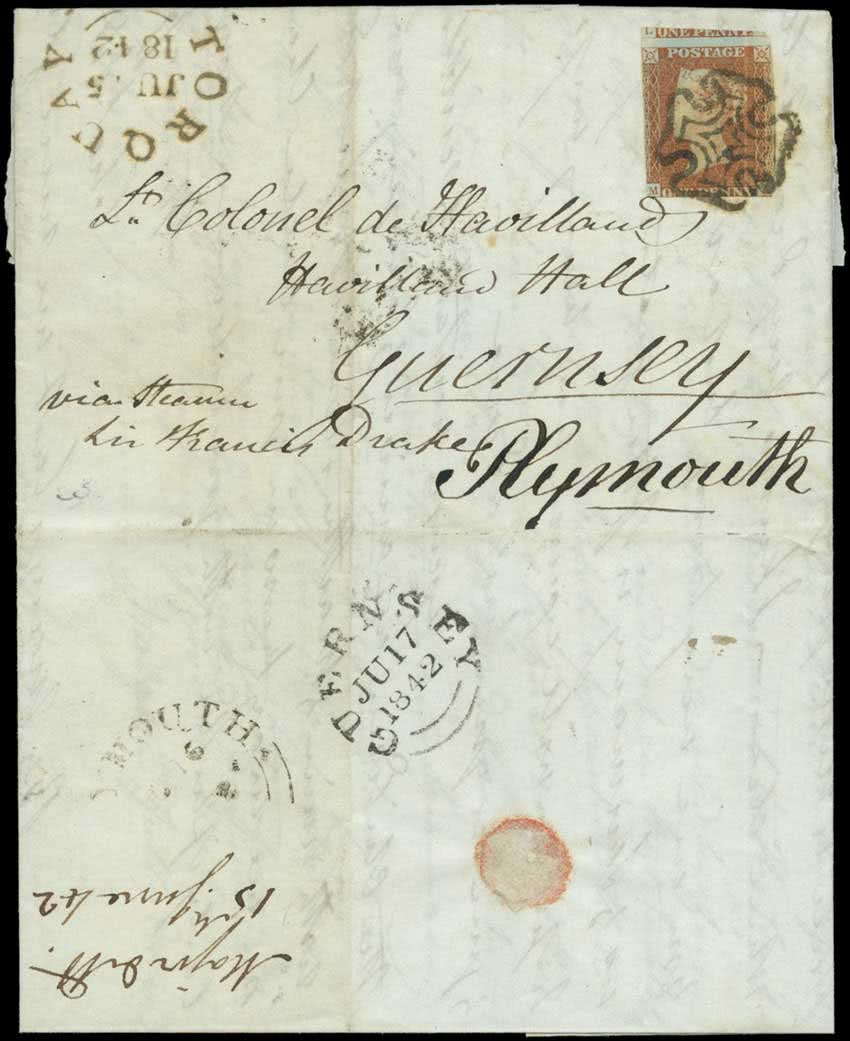 TORQUAY
JU 15
1842
L ONE PENNY
POSTAGE
M ONE PENNY
Lt. Colonel de Havilland
Havilland Hall
Guernsey
via Steamer
Sir Francis Drake
Plymouth
GUERNSEY
JU 17
1842
MOUTH
Major de H.
15th June 42